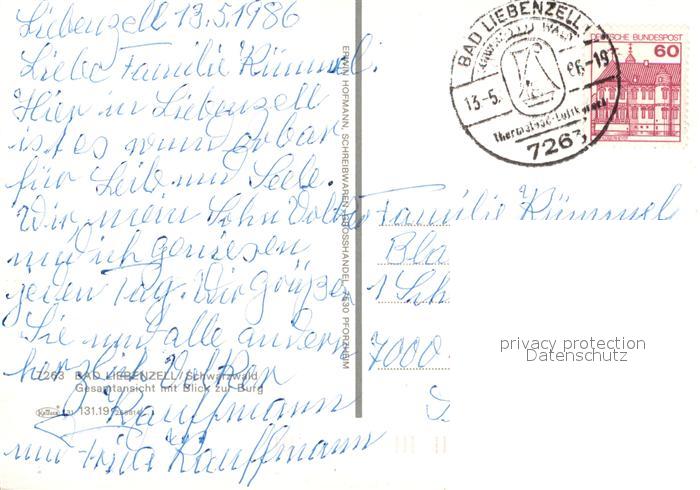 Liebenzell 13.5.1986
Liebe Familie Kümmel.
Hier in Liebenzell
ist es wunderbar
für Leib und Seele.
Wir, mein Sohn Volker
und ich geniesen
jeden Tag. Wir grüßen
Sie und alle andern
herzlich Volker
Kauffmann
und Frida Kauffmann
7263 BAD LIEBENZELL/Schwarzwald
Gesamtansicht mit Blick zur Burg
131.19
ERWIN HOFMANN, SCHREIBWAREN-GROSSHANDEL, 7530 PFORZHEIM
BAD LIEBENZELL 1
13-5. 86-19
7263
DEUTSCHE BUNDESPOST
60
Familie Kümmel
Bla
1 Sch
7000
privacy protection
Datenschutz